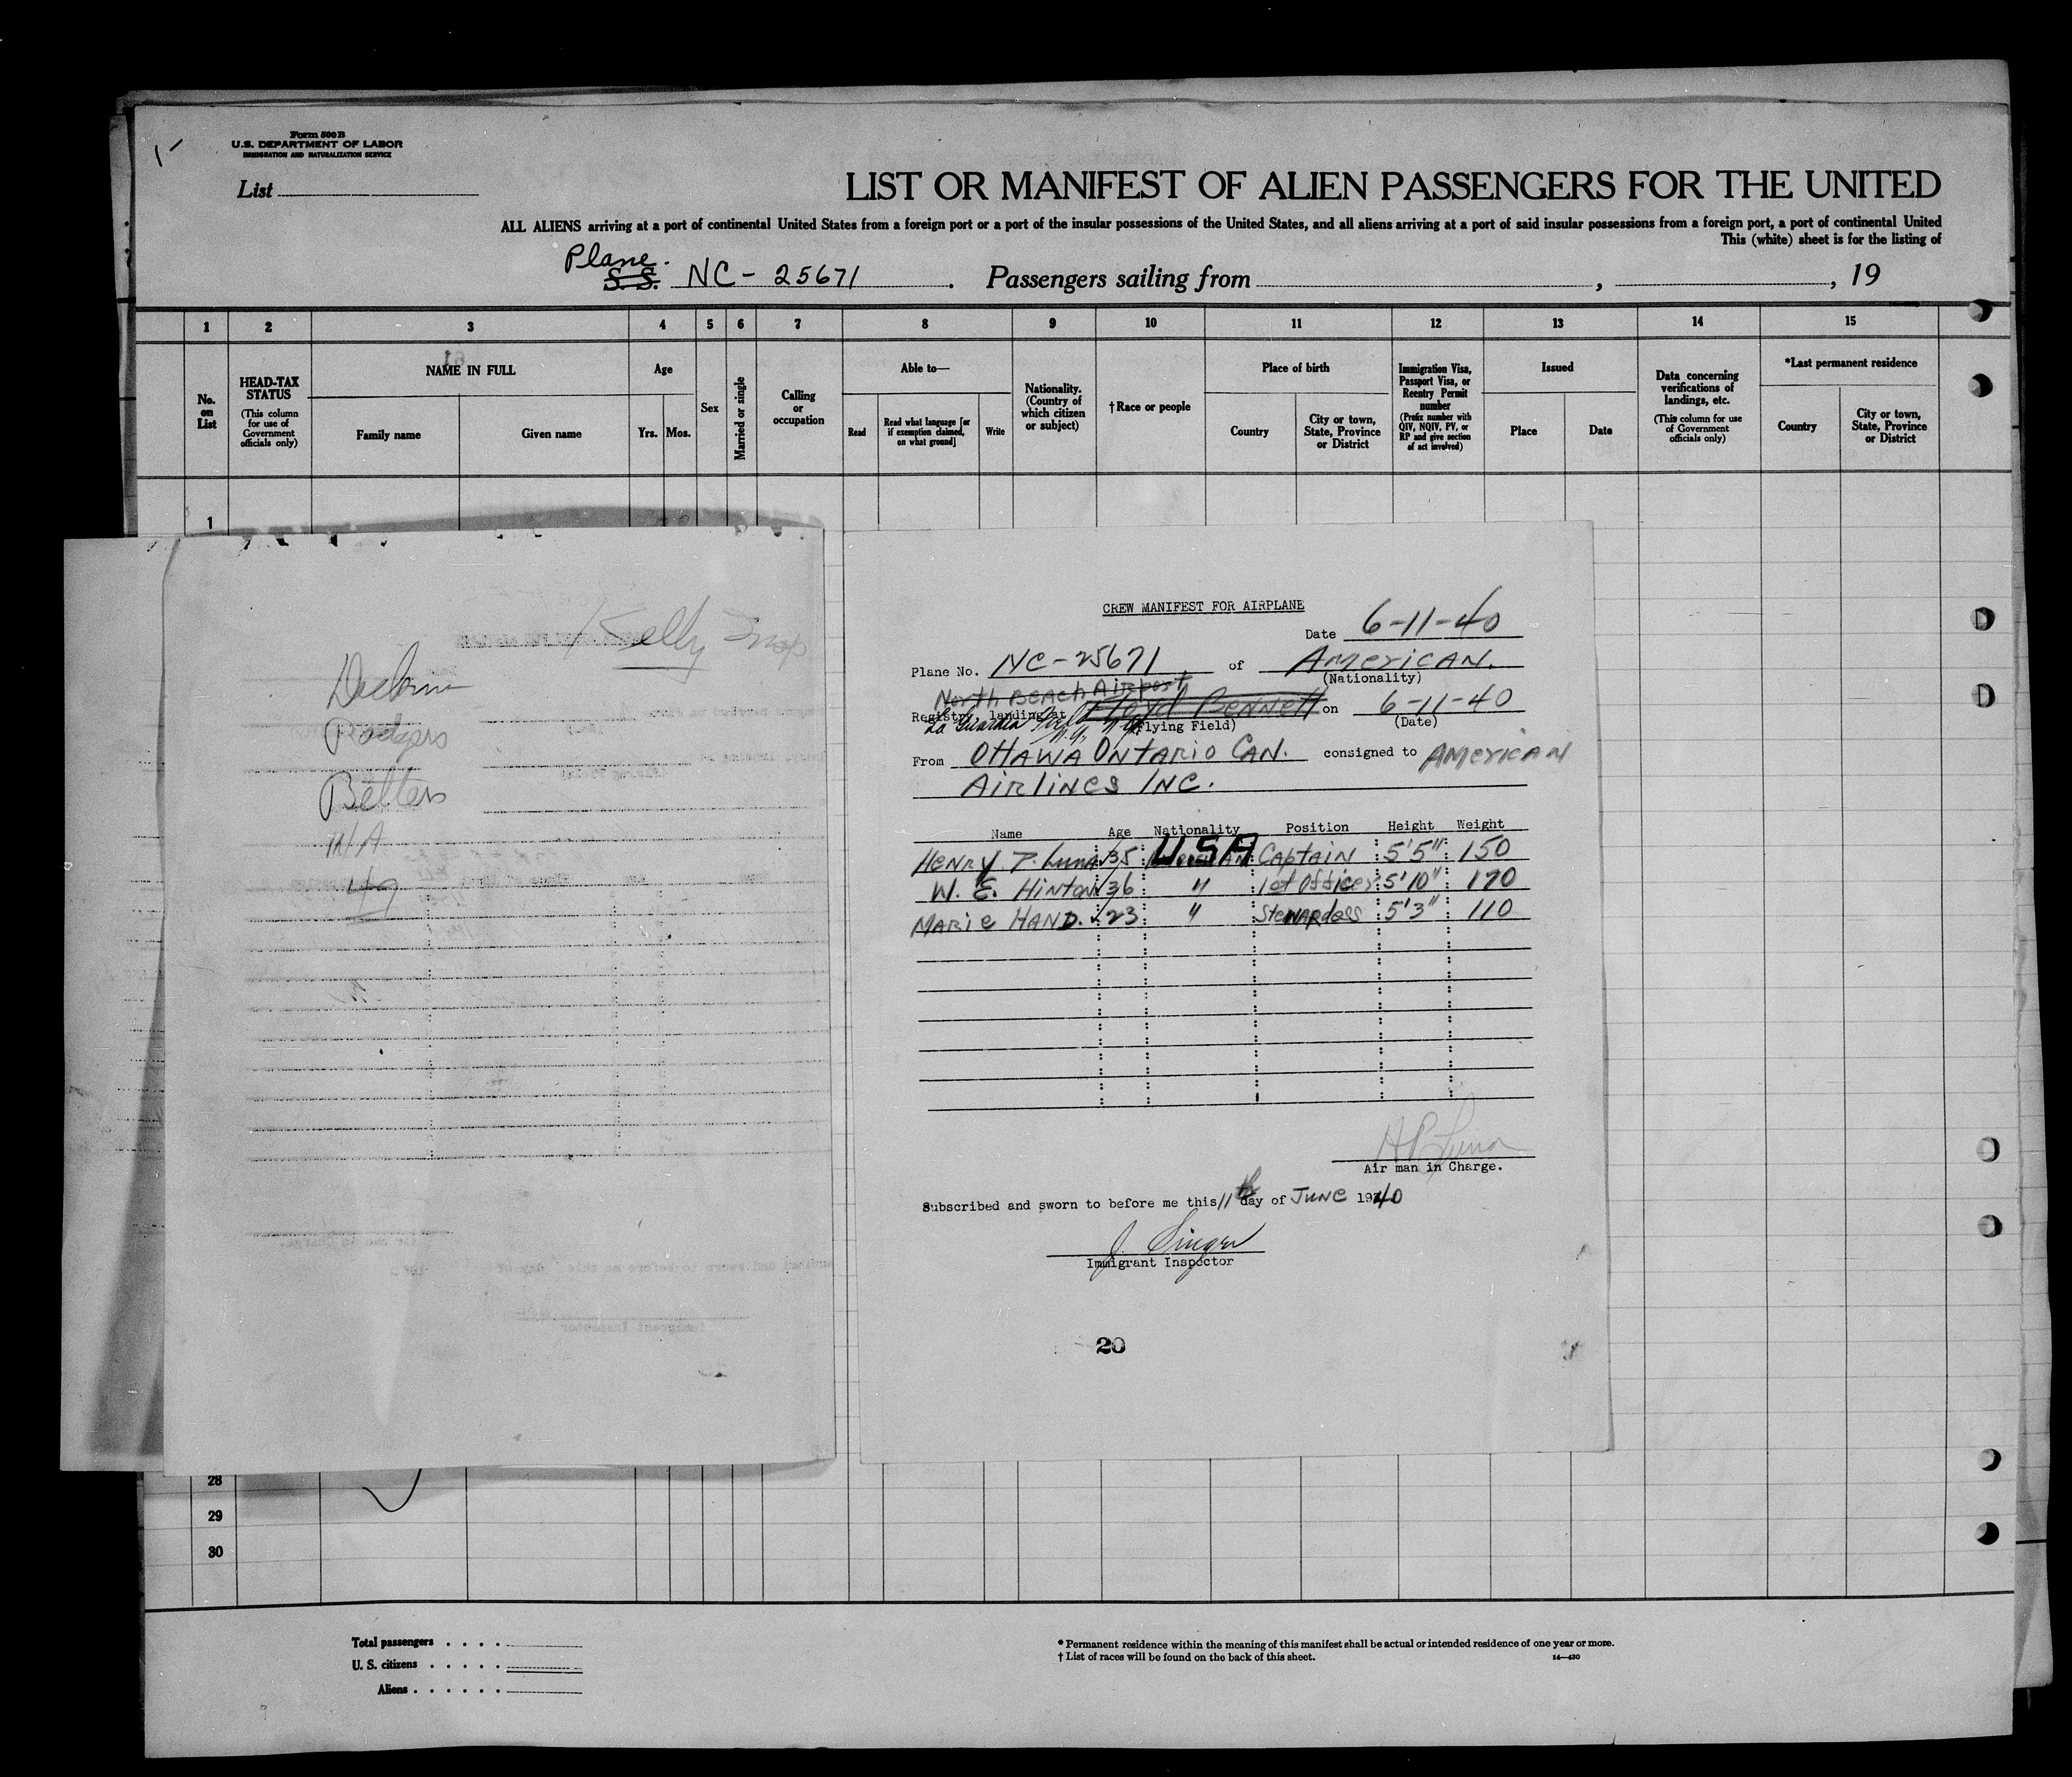 Form 500 B
U.S. DEPARTMENT OF LABOR
IMMIGRATION AND NATURALIZATION SERVICE
List
LIST OR MANIFEST OF ALIEN PASSENGERS FOR THE UNITED
ALL ALIENS arriving at a port of continental United States from a foreign port or a port of the insular possessions of the United States, and all aliens arriving at a port of said insular possessions from a foreign port, a port of continental United
This (white) sheet is for the listing of
Plane.
S.S. NC - 25671 . Passengers sailing from , , 19
1 2 3 4 5 6 7 8 9 10 11 12 13 14 15
No. on List
HEAD-TAX STATUS (This column for use of Government officials only)
NAME IN FULL
Family name Given name
Age
Yrs. Mos.
Sex
Married or single
Calling or occupation
Able to—
Read Read what language [or if exemption claimed, on what ground] Write
Nationality. (Country of which citizen or subject)
†Race or people
Place of birth
Country City or town, State, Province or District
Immigration Visa, Passport Visa, or Reentry Permit number (Prefix number with QIV, NQIV, PV, or RP and give section of act involved)
Issued
Place Date
Data concerning verifications of landings, etc. (This column for use of Government officials only)
*Last permanent residence
Country City or town, State, Province or District
1
Kelly
Rodgers
49
CREW MANIFEST FOR AIRPLANE
Date 6-11-40
Plane No. NC-25671 of AMERICAN.
(Nationality)
North BEACH Airport
Registry, landing at Floyd BENNETT on 6-11-40
La Guardia Field N.Y. (Flying Field) (Date)
From OTTAWA ONTARIO CAN. consigned to AMERICAN
AIRLINES INC.
Name Age Nationality Position Height Weight
HENRY P. Luna 35 U.S.A CAPTAIN 5'5" 150
W. E. HINTON 36 " 1st Officer 5'10" 170
MARIE HAND. 23 " STEWARDESS 5'3" 110
HP Luna
Air man in Charge.
Subscribed and sworn to before me this 11th day of JUNE 1940
J. Singer
Immigrant Inspector
20
28
29
30
Total passengers . . . .
U. S. citizens . . . . .
Aliens . . . . . .
* Permanent residence within the meaning of this manifest shall be actual or intended residence of one year or more.
† List of races will be found on the back of this sheet. 14—430